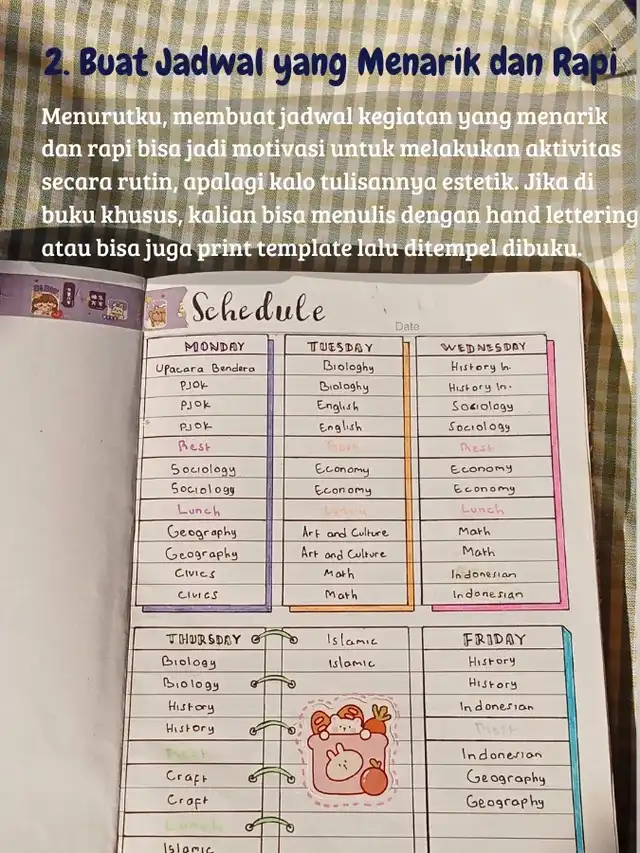 2. Buat Jadwal yang Menarik dan Rapi
Menurutku, membuat jadwal kegiatan yang menarik
dan rapi bisa jadi motivasi untuk melakukan aktivitas
secara rutin, apalagi kalo tulisannya estetik. Jika di
buku khusus, kalian bisa menulis dengan hand lettering
atau bisa juga print template lalu ditempel dibuku.
Schedule
Date
MONDAY
Upacara Bendera
PJOK
PJOK
PJOK
Rest
Sociology
Sociology
Lunch
Geography
Geography
Civics
Civics
TUESDAY
Biologhy
Biologhy
English
English
Rest
Economy
Economy
Lunch
Art and Culture
Art and Culture
Math
Math
WEDNESDAY
History In
History In.
Sociology
Sociology
Rest
Economy
Economy
Lunch
Math
Math
Indonesian
Indonesian
THURSDAY
Biology
Biology
History
History
Rest
Craft
Craft
Lunch
Islamic
Islamic
Islamic
FRIDAY
History
History
Indonesian
Rest
Indonesian
Geography
Geography